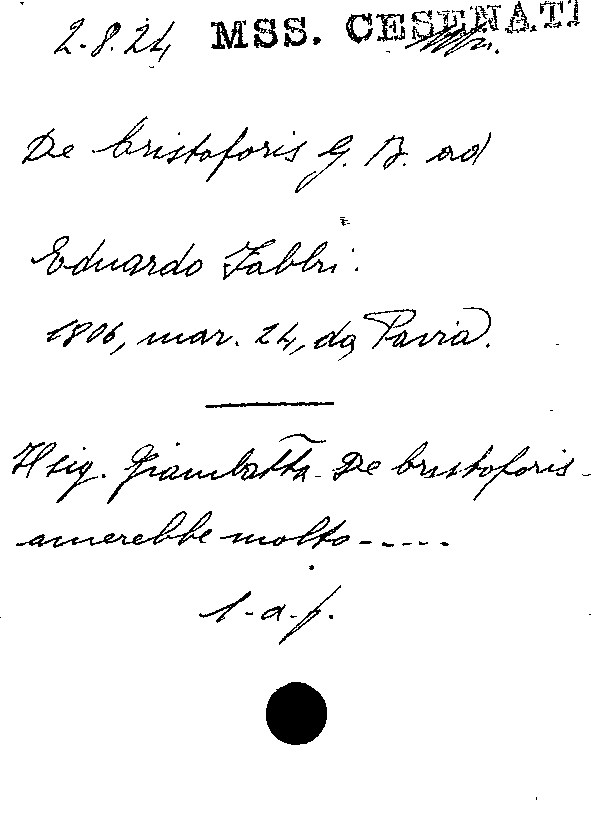 2.8.24 MSS. CESENATI
De Cristoforis G. B. ad
Eduardo Fabbri.
1806, mar. 24, da Pavia.
Il sig. Giambatta De Cristoforis
amerebbe molto-----
l-a-f.